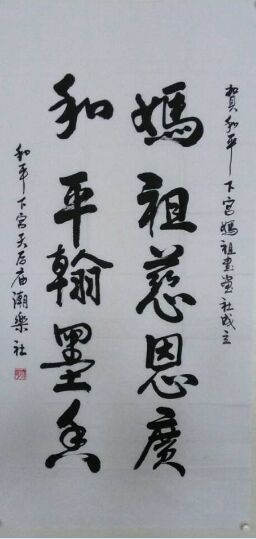 賀和平下宮媽祖書畫社成立
媽祖慈恩廣
和平翰墨香
和平下宮天后庙潮樂社